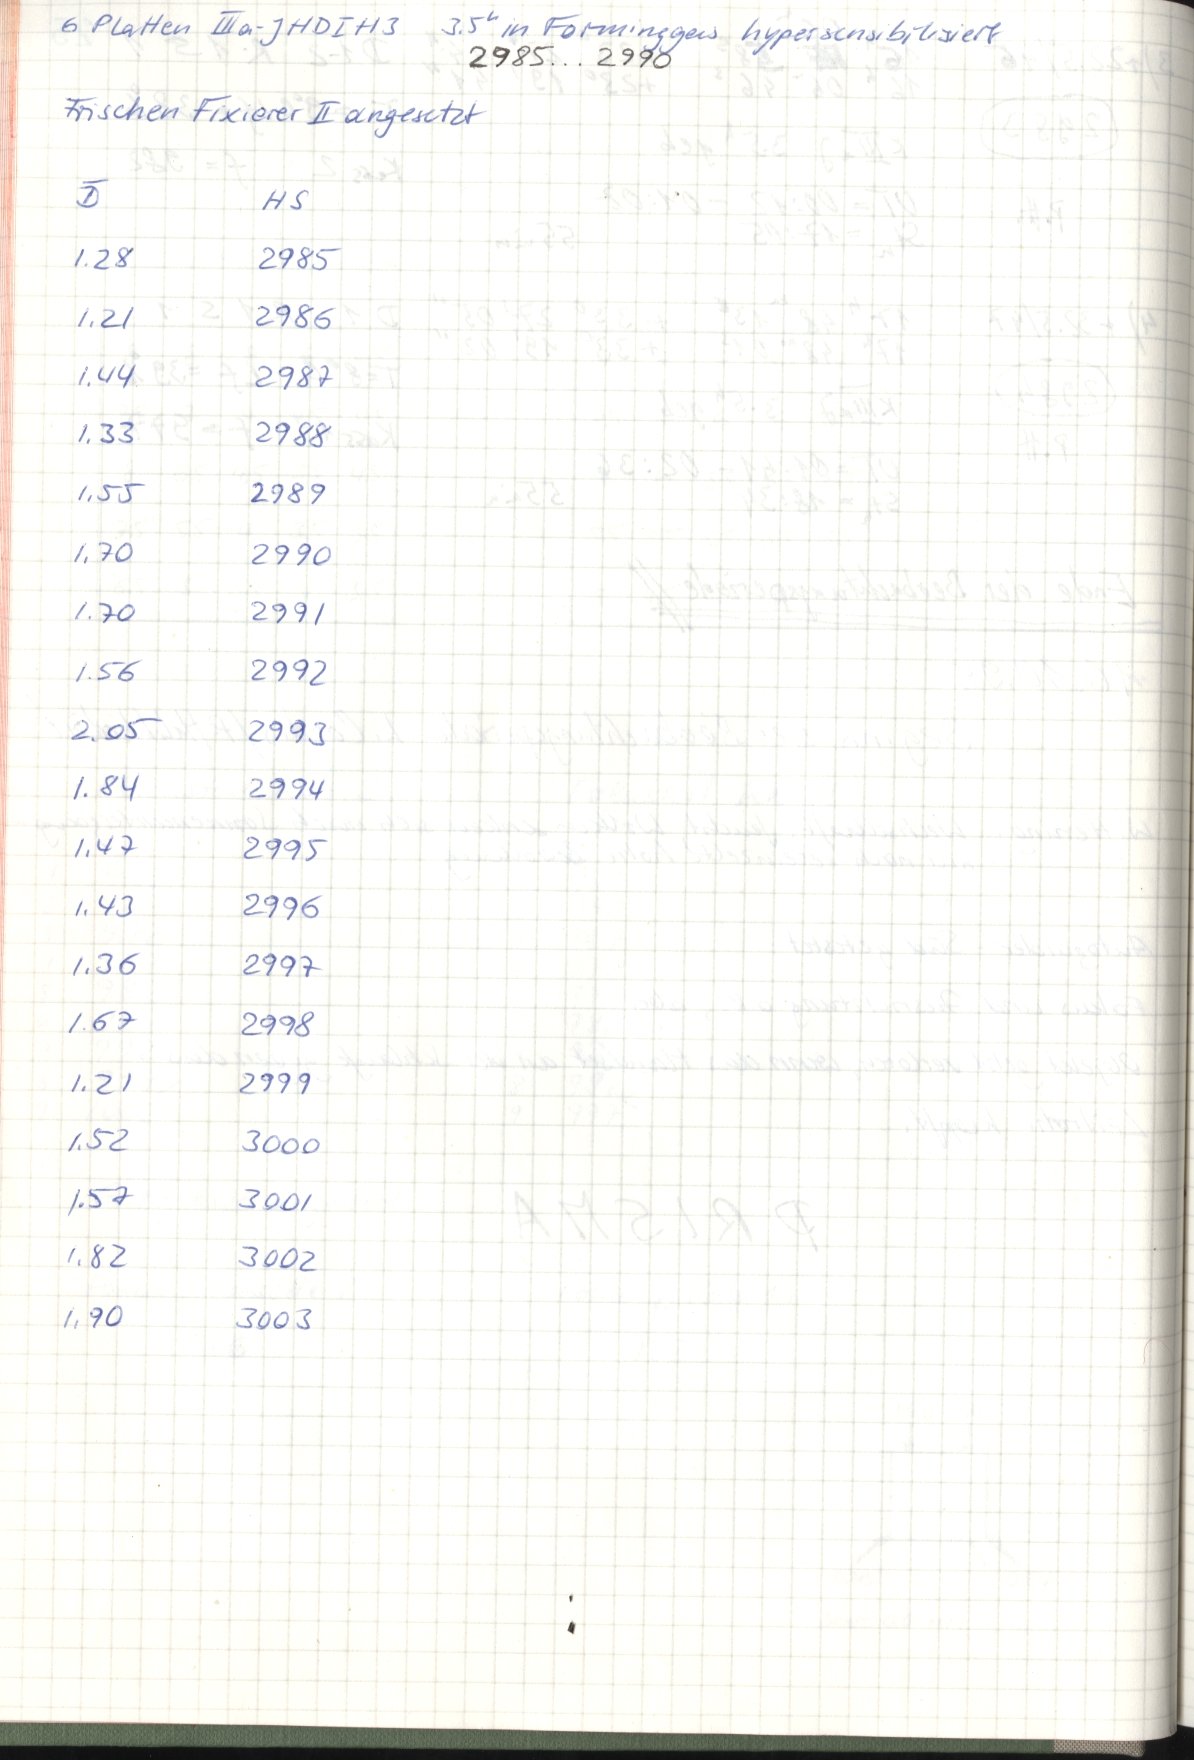 6 Platten IIIa-J HDIH3 3.5h in Forminggas hypersensibilisiert
2985...2990
Frischen Fixierer II angesetzt
D̅ HS
1.28 2985
1.21 2986
1.44 2987
1.33 2988
1.55 2989
1.70 2990
1.70 2991
1.56 2992
2.05 2993
1.84 2994
1.47 2995
1.43 2996
1.36 2997
1.67 2998
1.21 2999
1.52 3000
1.57 3001
1.82 3002
1.90 3003